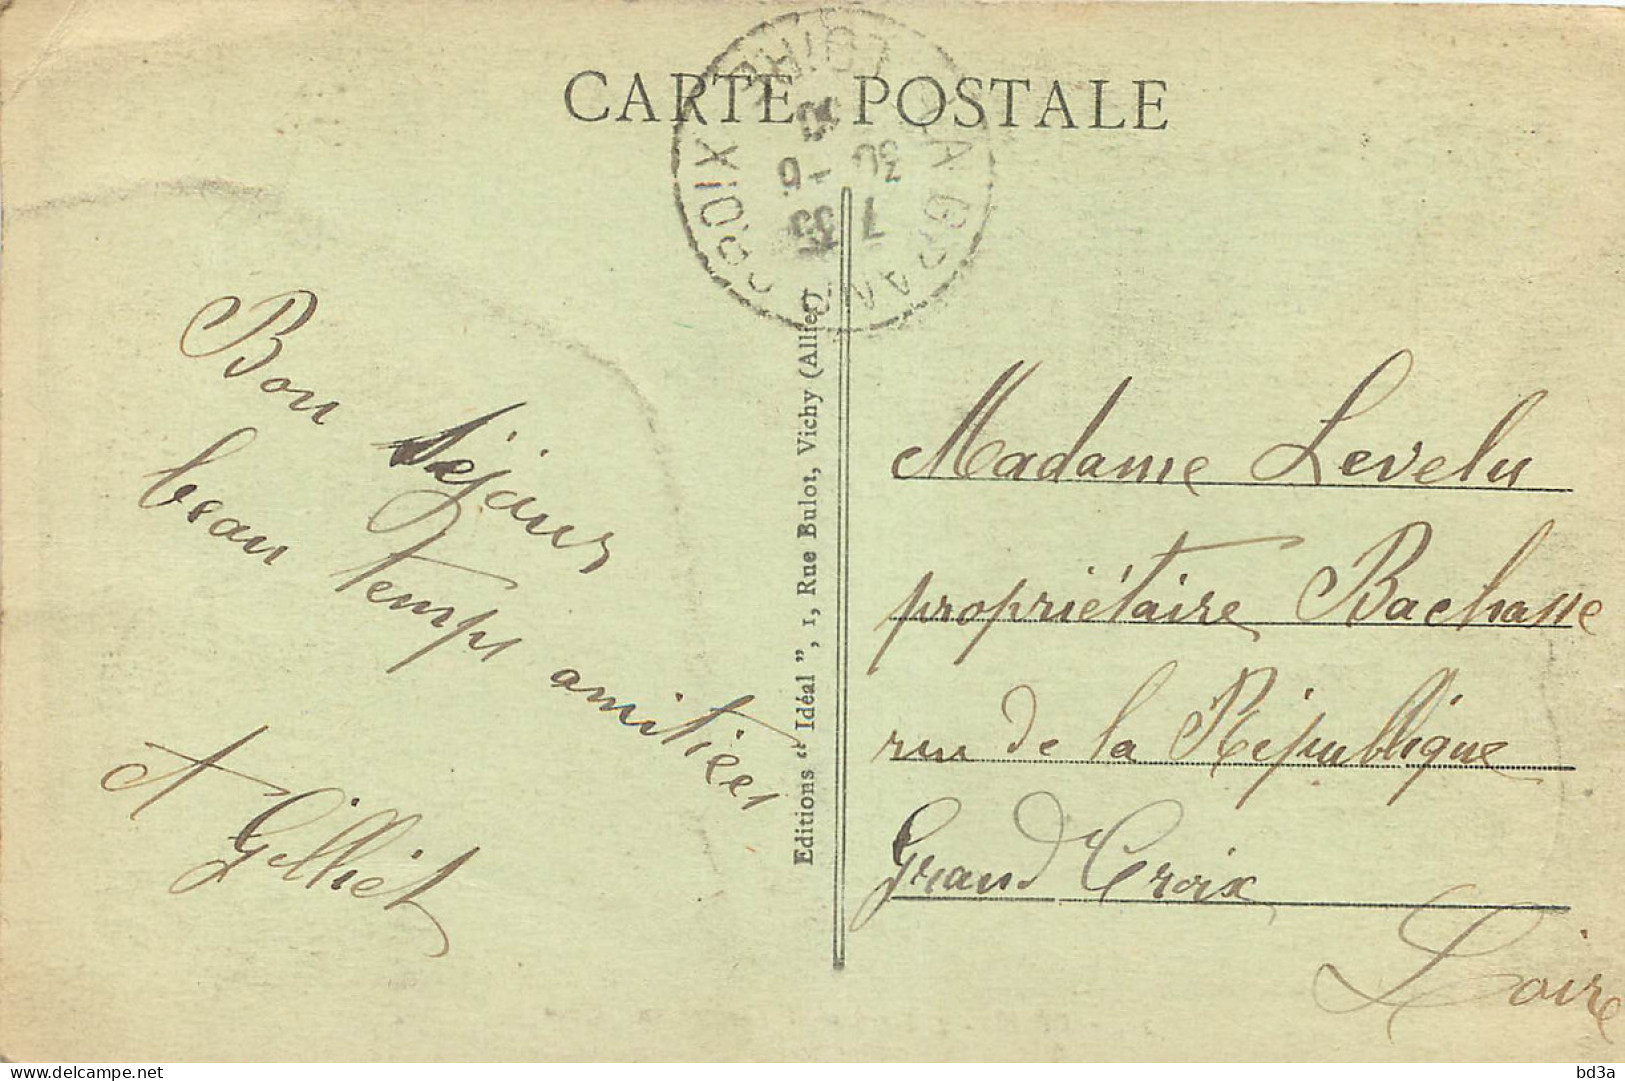 CARTE POSTALE
LA GRAND CROIX
LOIRE
Bon séjour
beau temps amitiées
A Gilliet
Editions “ Idéal ”, 1, Rue Bulot, Vichy (Allier)
Madame Levelu
propriétaire Bachasse
rue de la République
Grand Croix
Loire
delcampe.net
bd3a